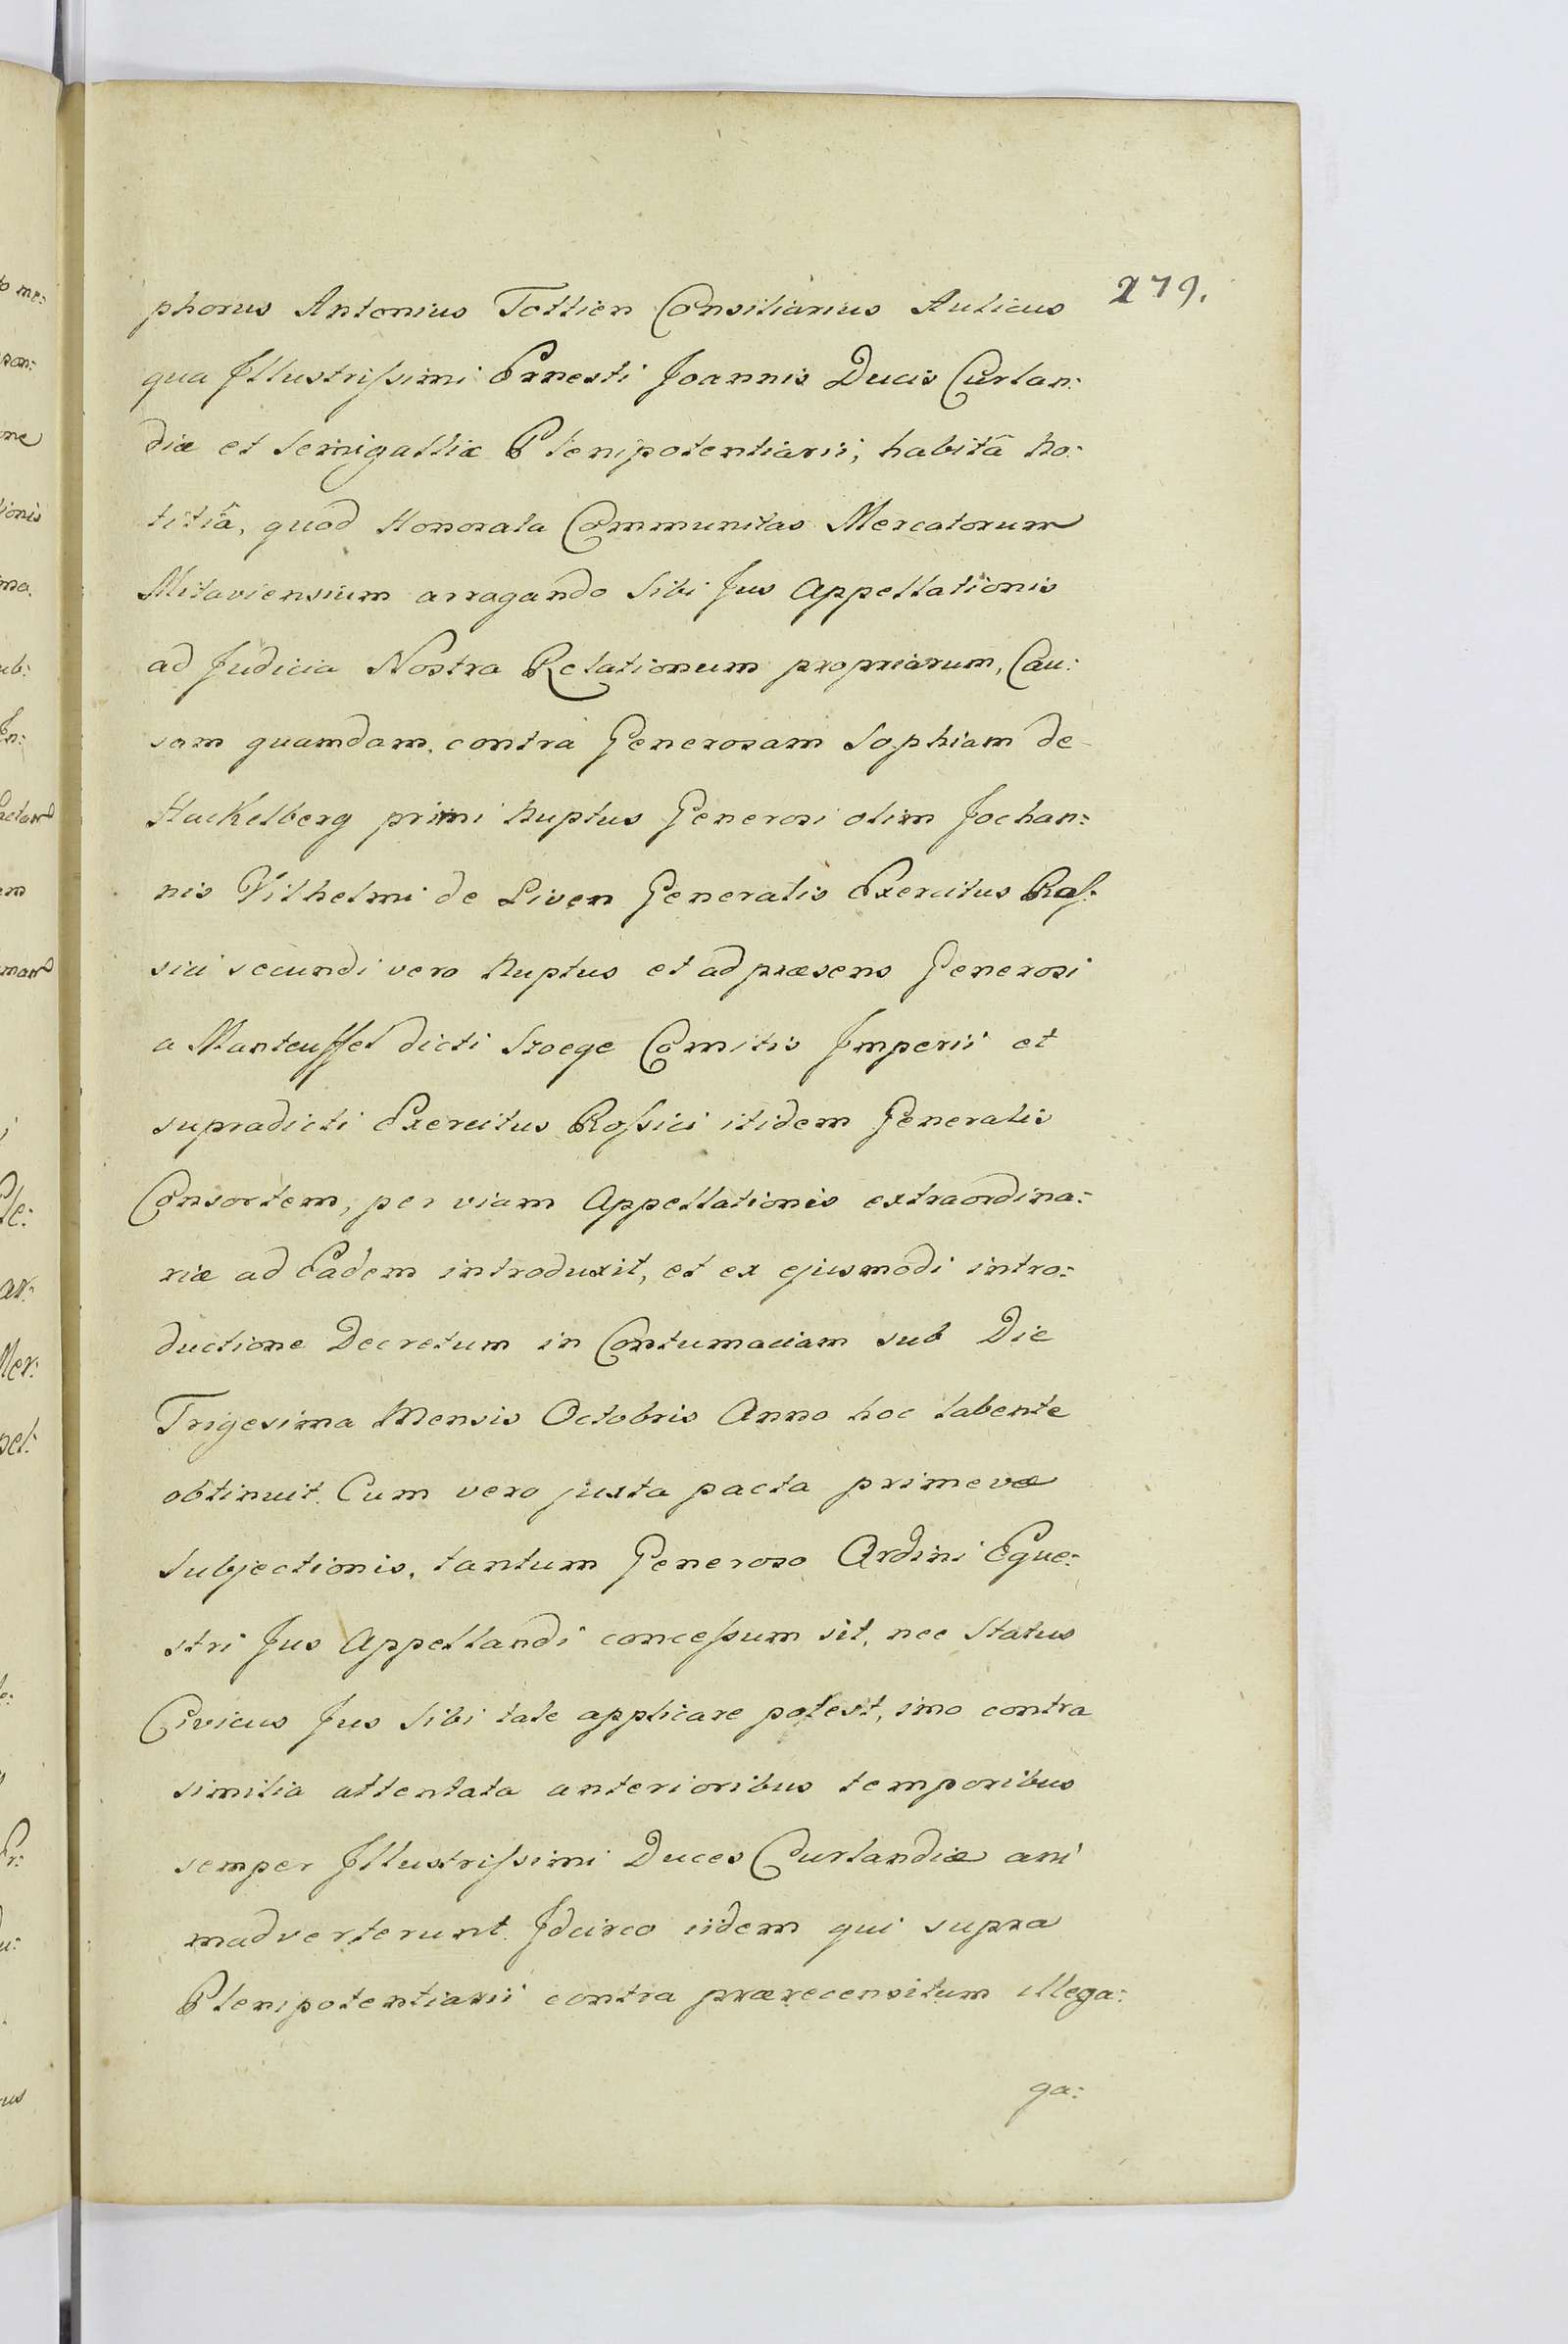 279.
phorus Antonius Tottien Consiliarius Aulicus
qua Illustrissimi Ernesti Joannis Ducis Curlan:
diæ et Semigalliæ Plenipotentiarii, habitâ No:
titiâ, quod Honorata Communitas Mercatorum
Mitaviensium arrogando Sibi Jus Appellationis
ad Judicia Nostra Relationum propriarum, Cau:
sam quamdam, contra Generosam Sophiam de
Stackelberg primi Nuptus Generosi olim Jochan:
nis Vilhelmi de Liven Generalis Exercitus Ros:
sici secundi vero Nuptus et ad præsens Generosi
a Manteuffel dicti Szoege Comitis Imperii et
supradicti Exercitus Rossici itidem Generalis
Consortem, per viam Appellationis extraordina:
riæ ad Eadem introduxit, et ex ejusmodi intro:
ductione Decretum in Contumaciam sub Die
Trigesima Mensis Octobris Anno hoc labente
obtinuit. Cum vero juxta pacta primevæ
Subjectionis, tantum Generoso Ordini Eque:
stri Jus Appellandi concessum sit, nec Status
Civicus Jus Sibi tale applicare potest, imo contra
similia attentata anterioribus temporibus
semper Illustrissimi Duces Curlandiæ ani
madverterunt. Idcirco iidem qui supra
Plenipotentiarii contra prærecensitum illega:
ga: